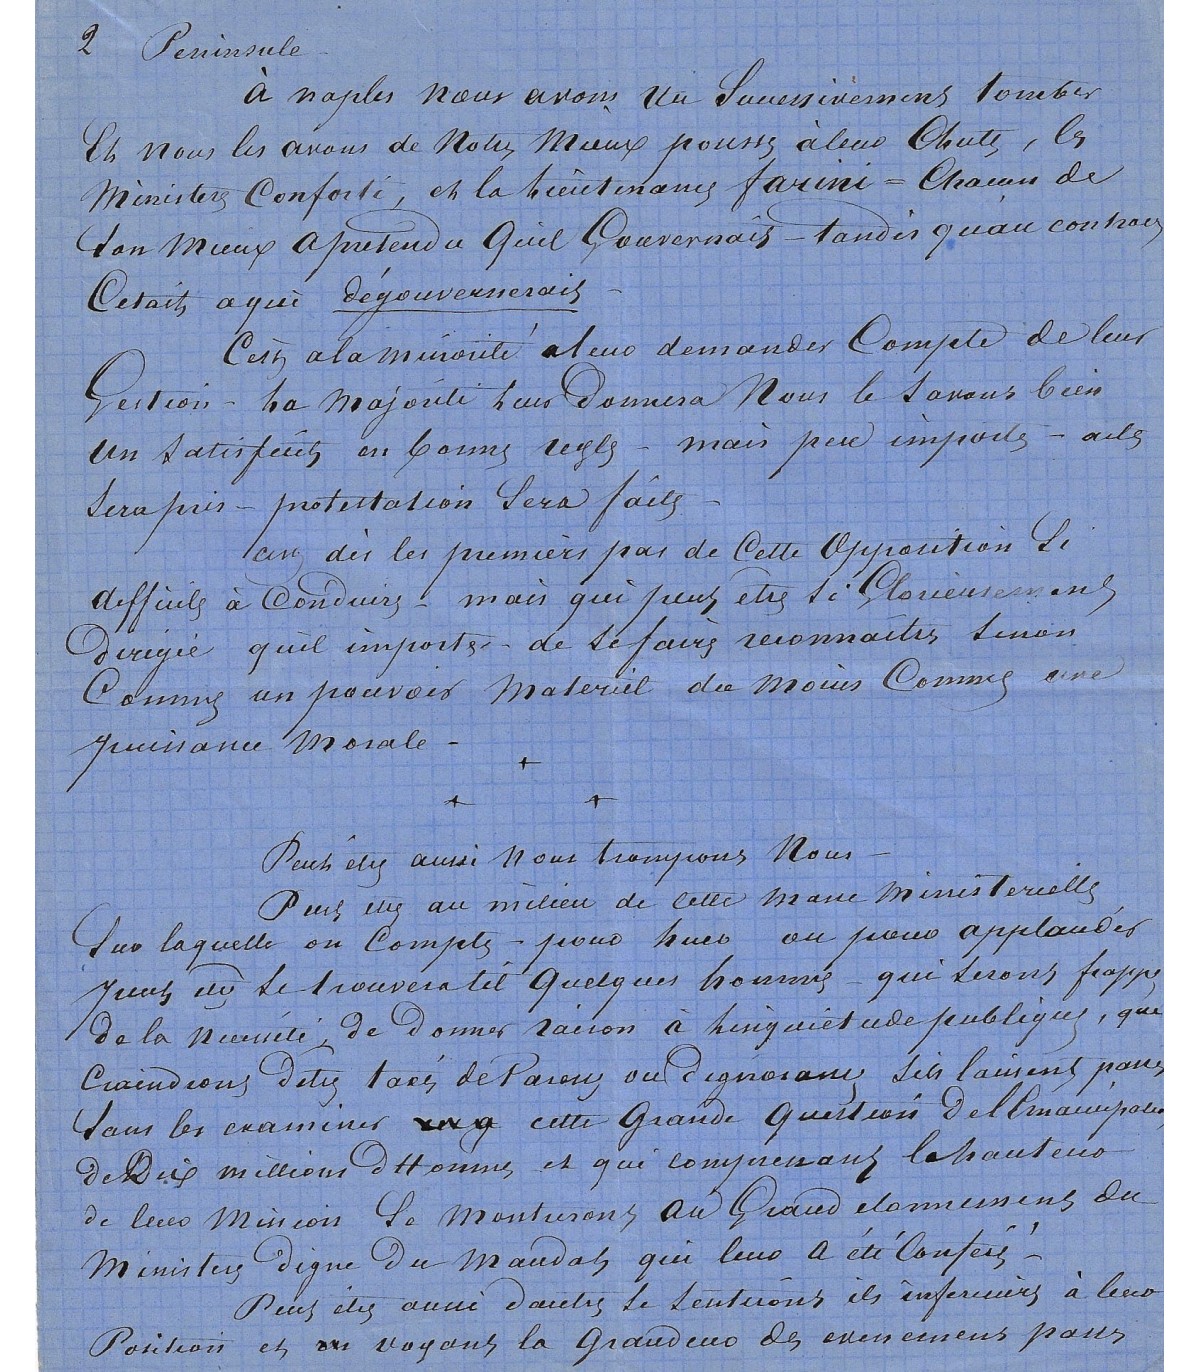 2 Peninsule
À naples nous avons vu Successivement tomber
Et nous les avons de Notre Mieux poussé à leur Chute, le
Ministere Conforti, et la Lieutenance farini = Chacun de
Son Mieux a pretendu Quil Gouvernait – tandis qu'au contraire
C'etait a qui dégouvernerait –
C'est a la minorité a leur demander Compte de leur
Gestion – La Majorité leur Donnera Nous le savons bien
Un satisfecit en bonne regle – mais peu importe – acte
Sera pris – protestation Sera faite –
Car dès les premiers pas de Cette Opposition Si
difficile à Conduire – mais qui peut etre Si Glorieusement
Dirigée quil importe – de se faire reconnaître sinon
Comme un pouvoir Materiel du Moins Comme une
puissance Morale –
+
+ +
Peut être aussi Nous trompons Nous –
Peut etre au milieu de cette Masse Ministerielle
Sur laquelle on Compte – pour huer ou pour applaudir
peut etre se trouvera til Quelques hommes – qui seront frappés
de la necessité, de donner raison à linquietude publique, que
Craindront detre taxés de Paresse ou Dignorance Sils laissent passer
Sans les examiner cette Grande Question De lEmancipation
de Dix millions dHommes et qui comprenant la hauteur
de leur Mission Se Montreront Au Grand etonnement du
Ministere digne Du Mandat qui leur A été Conféré –
Peut être aussi dautre se sentiront ils inferieurs à leur
Position et voyant la Grandeur des evenements passer